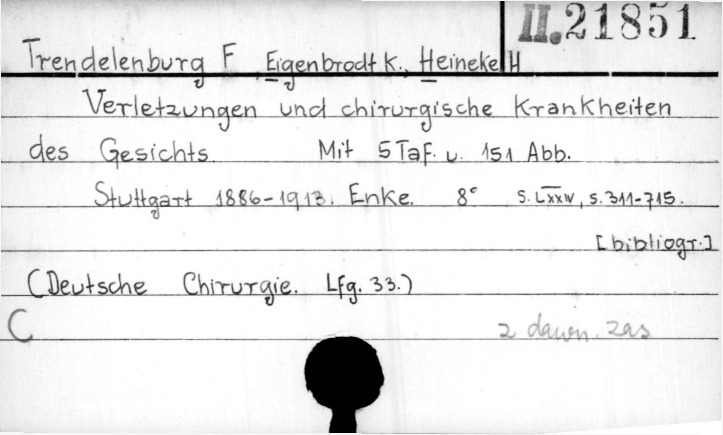 II.21851
Trendelenburg F, Eigenbrodt K., Heineke H
Verletzungen und chirurgische Krankheiten
des Gesichts. Mit 5 Taf. u. 151 Abb.
Stuttgart 1886-1913. Enke. 8° S. LXXIV, S. 311-715.
[bibliogr.]
(Deutsche Chirurgie. Lfg. 33.)
C z dawn. zas